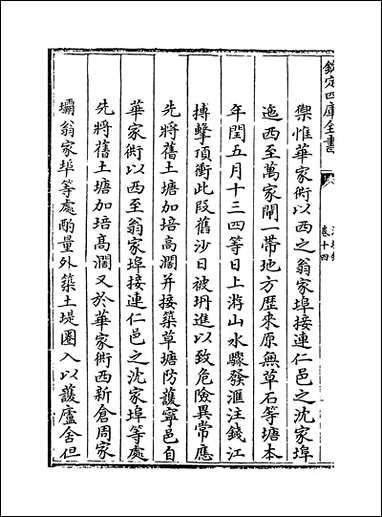 欽定四庫全書
卷十四
禦惟華家衖以西之翁家埠接連仁邑之沈家埠
迤西至萬家閘一帶地方歷來原無草石等塘本
年閏五月十三四等日上游山水驟發滙注錢江
搏擊頂衝此段舊沙日被坍進以致危險異常應
先將舊土塘加培髙濶并接築草塘防護寧邑自
華家衖以西至翁家埠接連仁邑之沈家埠等處
先將舊土塘加培髙濶又於華家衖西新倉周家
壩翁家埠等處酌量外築土堤圈入以䕶廬舍但